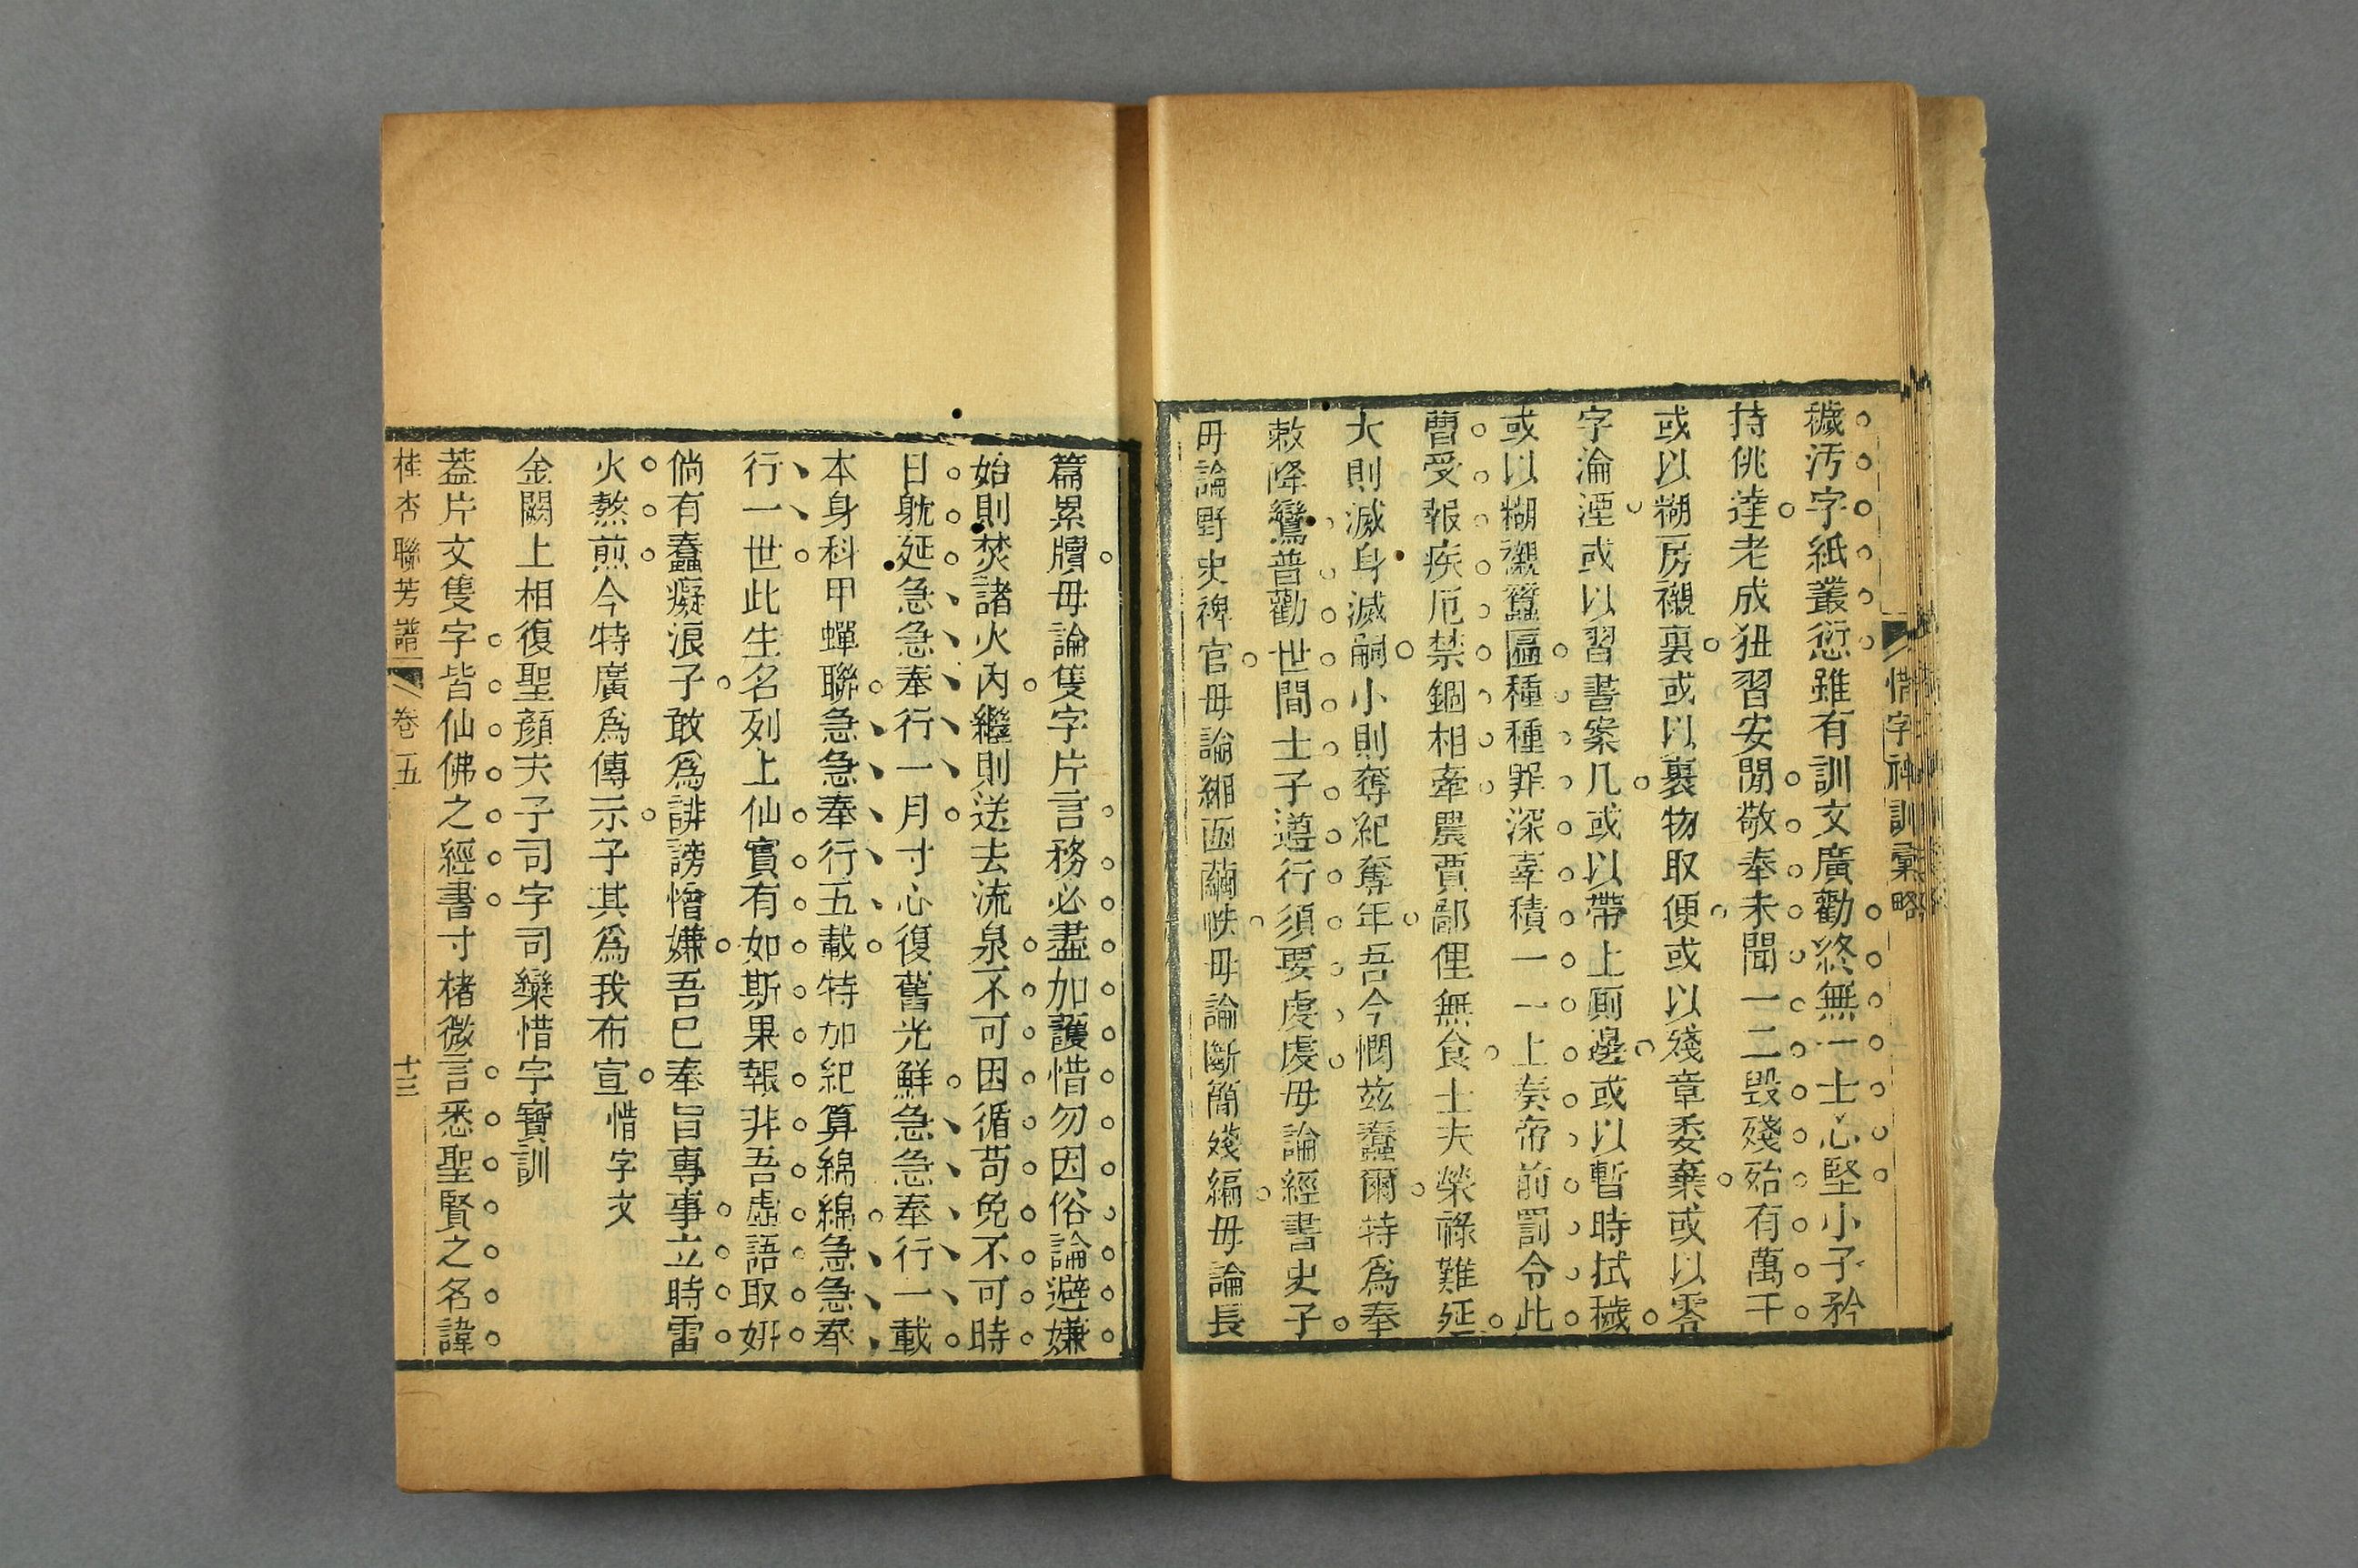 惜字神訓彙略
穢汚字紙叢愆雖有訓文廣勸終無一士心堅小子矜
持佻達老成狃習安閒敬奉未聞一二毀殘殆有萬千
或以糊房襯裏或以裹物取便或以殘章委棄或以零
字淪湮或以習書案几或以帶上厠邊或以暫時拭穢
或以糊襯蠶匾種種罪深辜積一一上奏帝前罰令此
曹受報疾厄禁錮相牽農賈鄙俚無食士夫榮祿難延
大則滅身滅嗣小則奪紀奪年吾今憫茲蠢爾特為奉
敕降鸞普勸世間士子遵行須要虔虔毋論經書史子
毋論野史稗官毋論緗函繭帙毋論斷簡殘編毋論長
篇累牘毋論隻字片言務必盡加護惜勿因俗論避嫌
始則焚諸火內繼則送去流泉不可因循苟免不可時
日躭延急急奉行一月寸心復舊光鮮急急奉行一載
本身科甲蟬聯急急奉行五載特加紀算綿綿急急奉
行一世此生名列上仙實有如斯果報非吾虛語取妍
倘有蠢癡浪子敢為誹謗憎嫌吾已奉旨專事立時雷
火熬煎今特廣為傳示子其為我布宣 惜字文
金闕上相復聖顏夫子司字司欒惜字寶訓
蓋片文隻字皆仙佛之經書寸楮微言悉聖賢之名諱
桂杏聯芳譜 卷五 十三